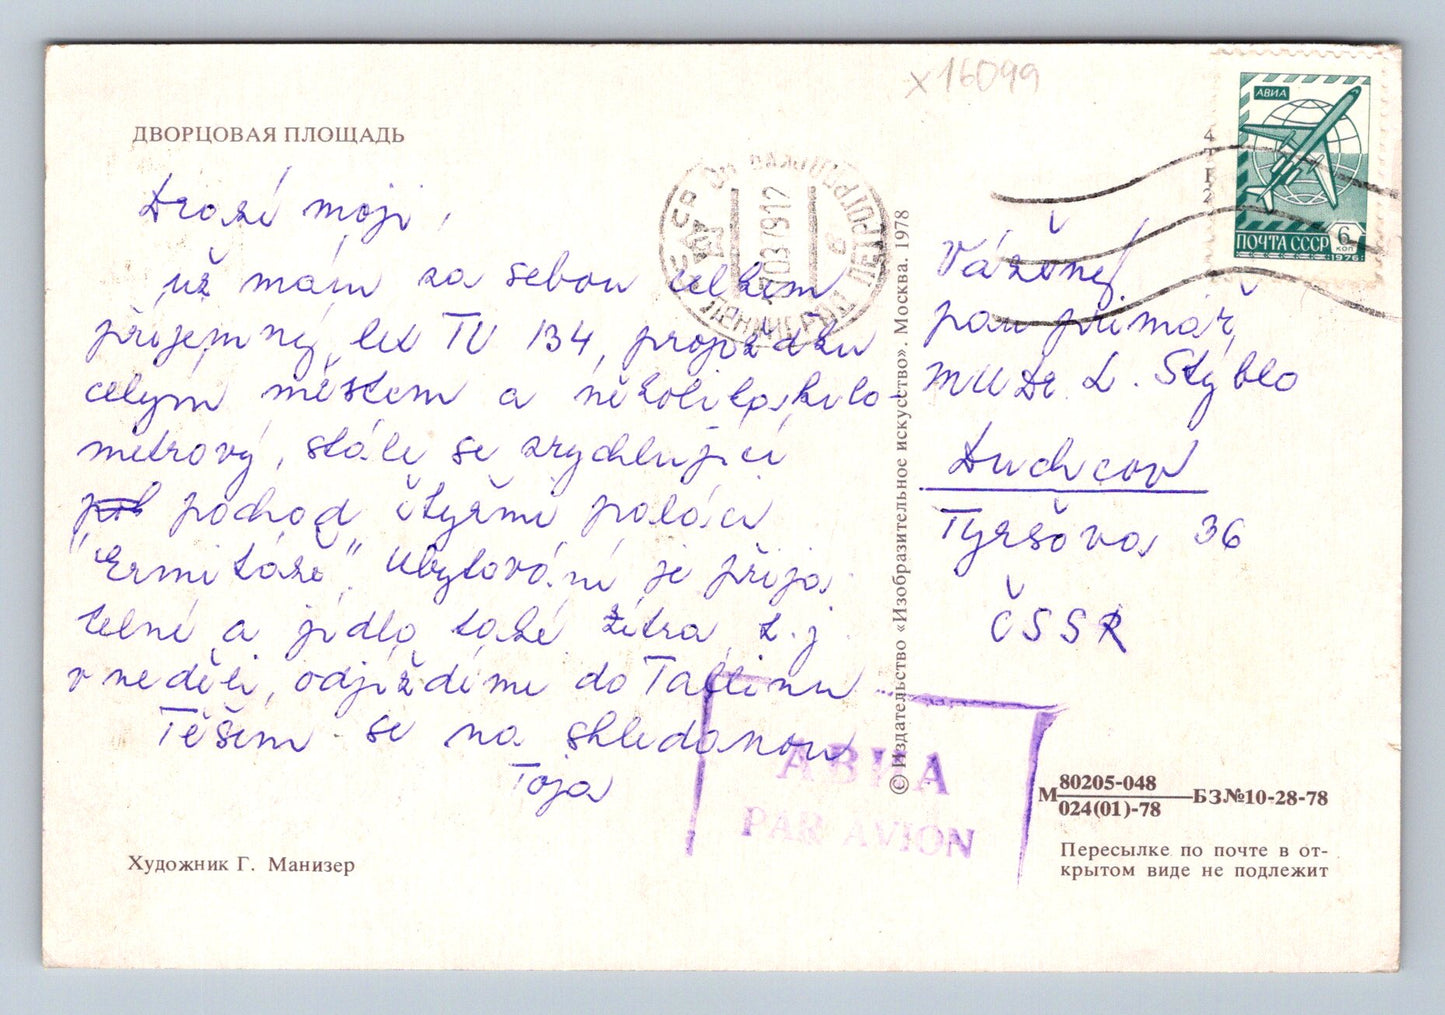 x16099
ДВОРЦОВАЯ ПЛОЩАДЬ
Drazí moji,
už mám za sebou celkem
příjemný let TU 134, projížďku
celým městem a několikakilo-
metrový, stále se zrychlující
pochod čtyřmi paláci
"Ermitáže". Ubytování je přija
telné a jídlo také Zítra, t.j.
v neděli, odjíždíme do Tallinu
Těším se na shledanou
Toja
Художник Г. Манизер
© Издательство «Изобразительное искусство». Москва. 1978
АВИА
ПОЧТА СССР
6
КОП
1976
СССР
ЛЕНИНГРАД
Vážený
pan primář
MUDr L. Stýblo
Duchcov
Tyršova 36
ČSSR
АВИА
PAR AVION
М 80205-048
024(01)-78 БЗ№10-28-78
Пересылке по почте в от-
крытом виде не подлежит